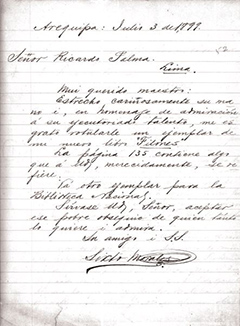 Arequipa: Julio 3 de 1,899.
Señor Ricardo Palma.
Lima.
Mui querido maestro:
Estrecho, cariñosamente su ma
no i, en homenaje de admiración
á su ejecutoriado talento, me es
grato rotularle un ejemplar de
mi nuevo libro Filones.
La página 135 contiene algo
que á Ud, merecidamente, se re
fiere.
Vá otro ejemplar para la
Biblioteca Nacional.
Sírvase Ud, Señor, aceptar
ese pobre obsequio de quien tanto
lo quiere i admira.
Su amigo i S.S.
Sixto Morales